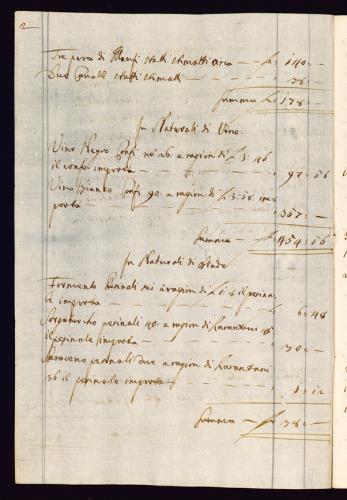 2
Tre para di Manzi stalli stimatti ƒ 140 –
Due Cavalli stalli stimatti ƒ 38 –
Summa ƒ 178 –
In Naturali di Vino
Vino Negro no 26 a ragion di ƒ 3:46
il importa 97 – 56
Vino Bianko 90 a ragion di ƒ 3:58 im
porta 357 –
Summa ƒ 454:56
In Naturali di Biade
Formento pesinali sei a ragion di ƒ 1:8 il pesina
le importa 6:48
Sorgoturcho pesinali 40 a ragion di Carantani 45
il pesinale importa 30 –
Saraceno pesinali due a ragion di Carantani
36 il pesinale importa 1:12
Summa ƒ 38 –